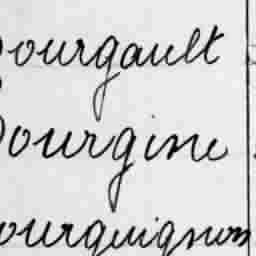 Bourgault
Bourgine
Bourguignon